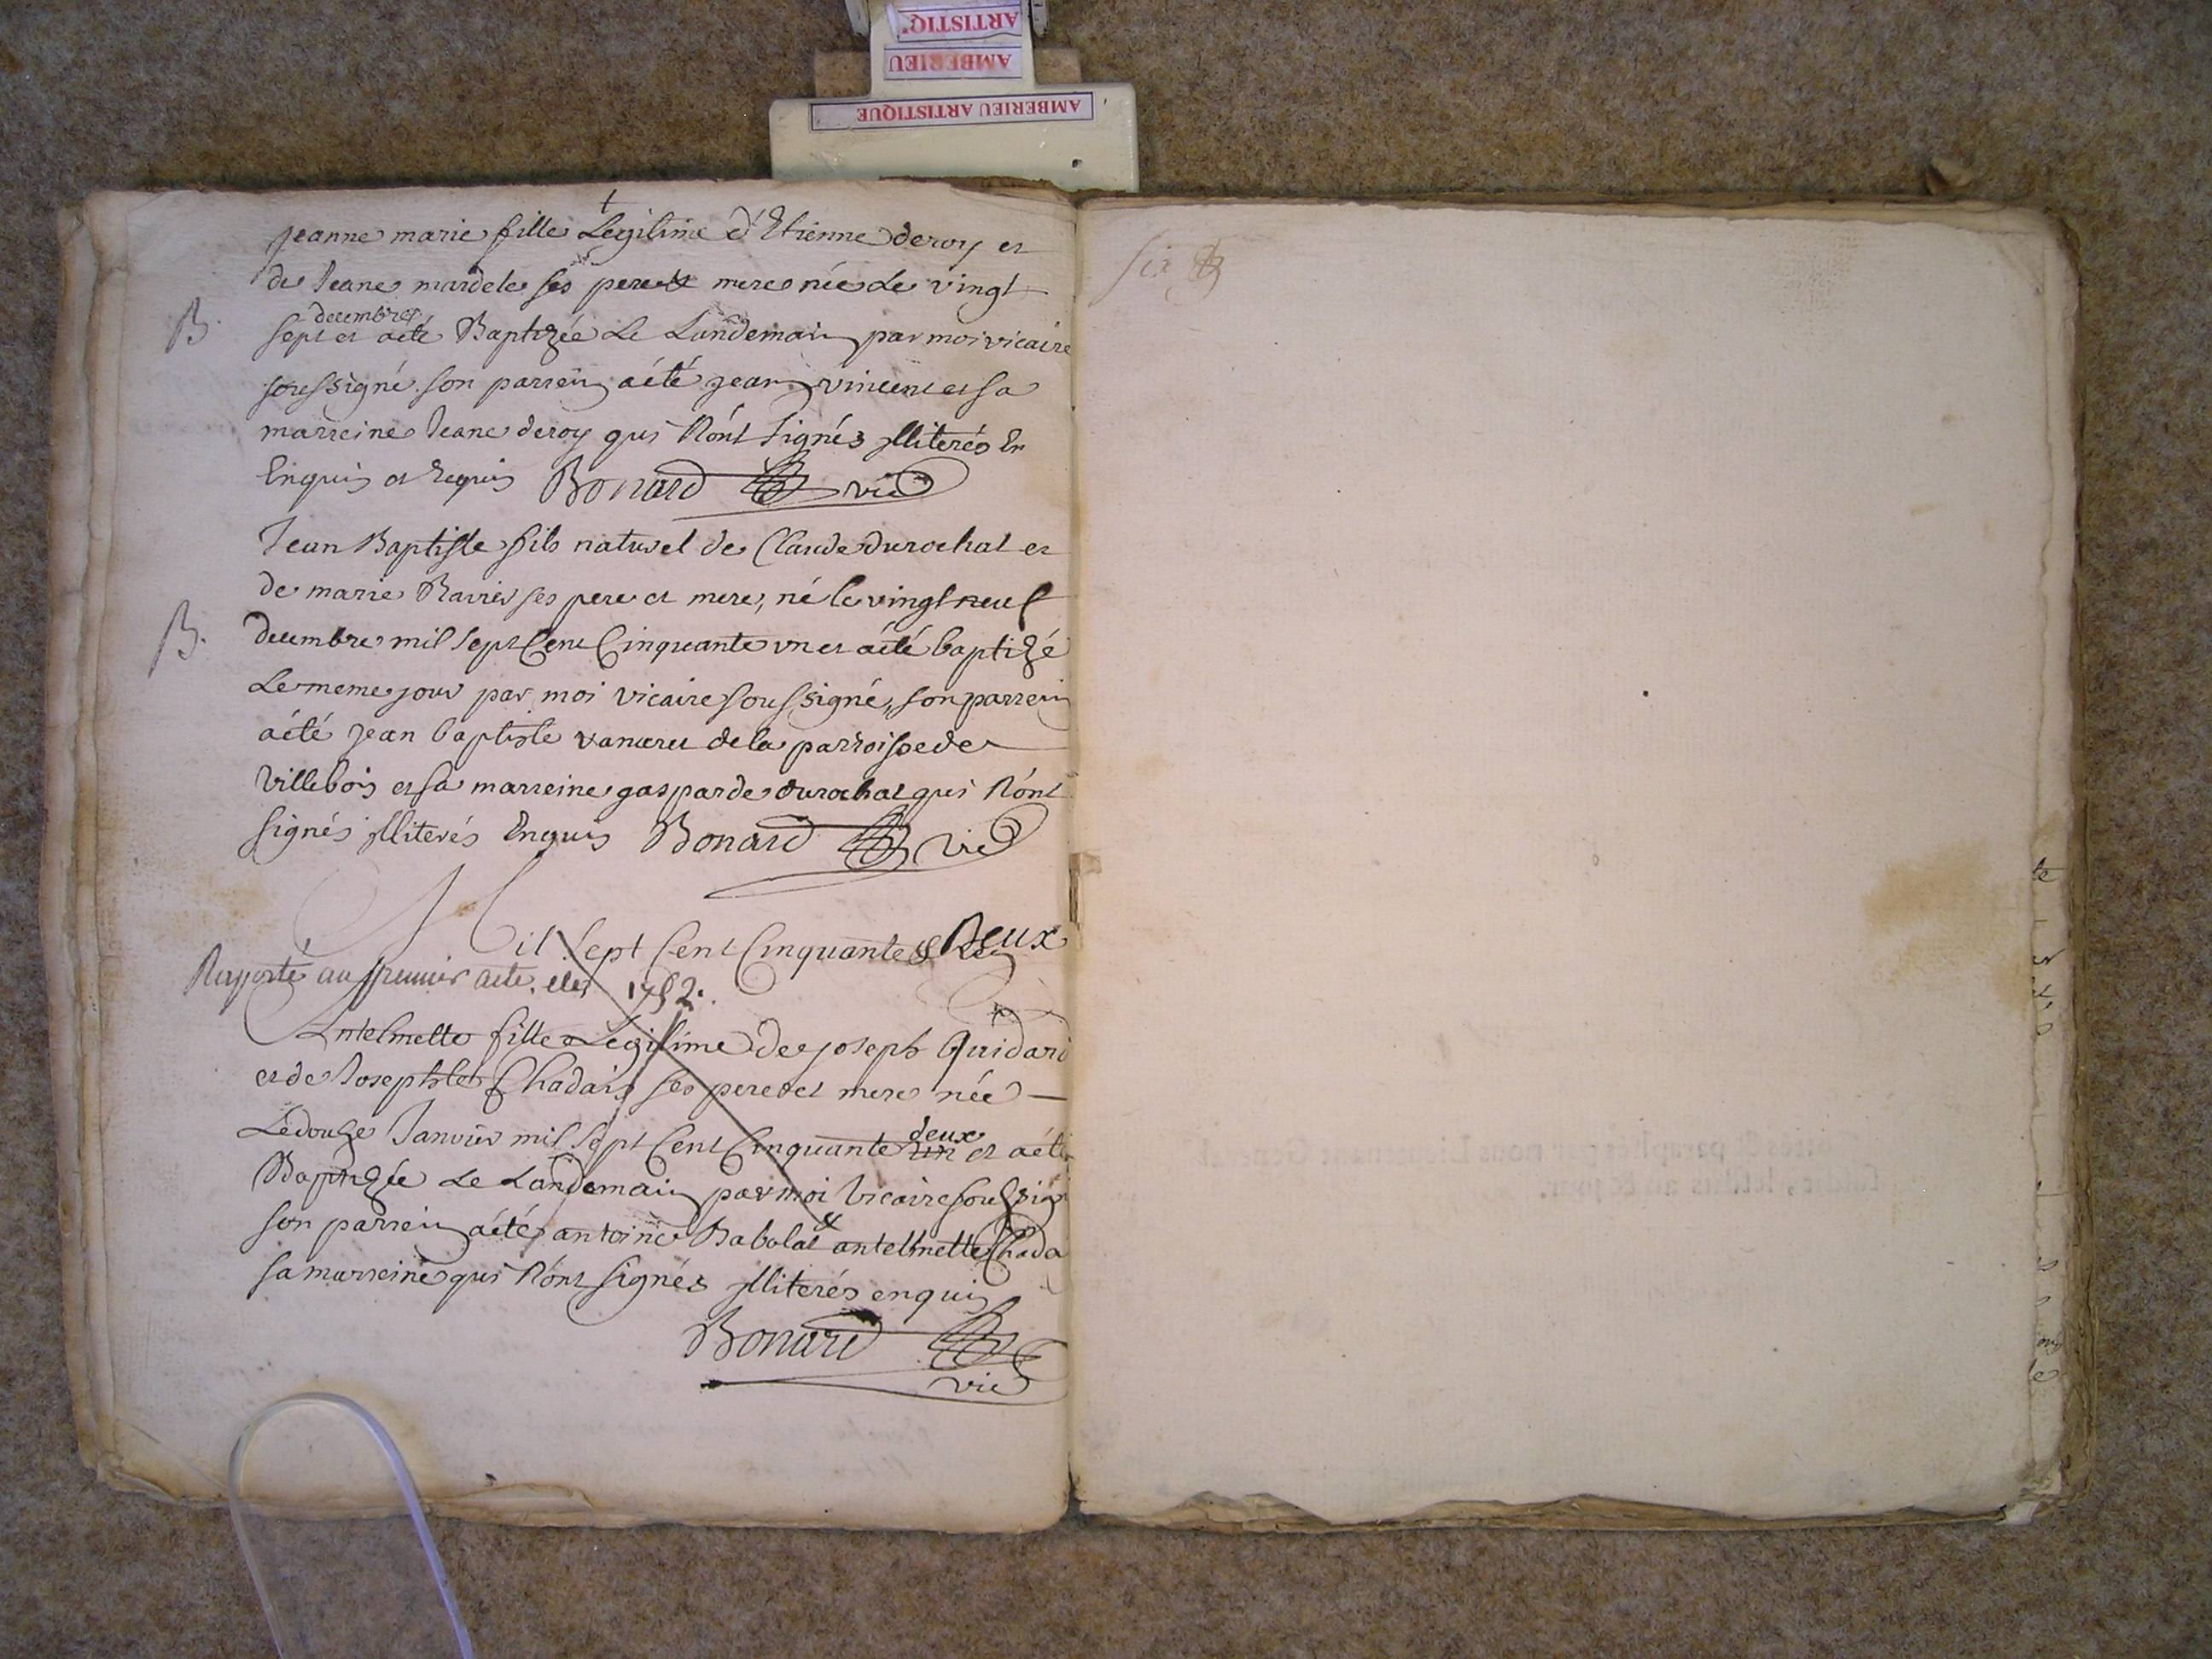 ARTISTIQ'
AMBERIEU
AMBERIEU ARTISTIQUE
jeanne marie fille Legitime d'Etienne deroy et
de Jeane mardele ses pere et mere née Le vingt
decembre
B. sept et aété Baptizée Le Landemain par moi vicaire
soussigné son parrein aété jean vincent et sa
marreine Jeane deroy qui N'ónt signés illiterés En
Enquis et Requis Bonard vic
Jean Baptiste fils naturel de Claude durochat et
de marie Ravier ses pere et mere, né le vingt neuf
B. decembre mil sept Cent Cinquante un et aété baptizé
Le meme jour par moi vicaire soussigné, son parrein
aété jean baptiste vanaret de la parroisse de
villebois et sa marreine gasparde durochat qui N'ónt
signés illiterés Enquis Bonard vic
Mil sept Cent Cinquante Deux
Raporté au premier acte de 1752.
Antelmette fille Legitime de joseph Guidard
et de Josephte Chadais ses pere et mere née
Le douze Janvier mil sept Cent Cinquante un et aété
deux
Baptizée Le Landemain par moi vicaire soussig
son parrein aété antoine Babolat & antelmette Chada
sa marreine qui N'ónt signés illiterés enquis
Bonard
vic
six